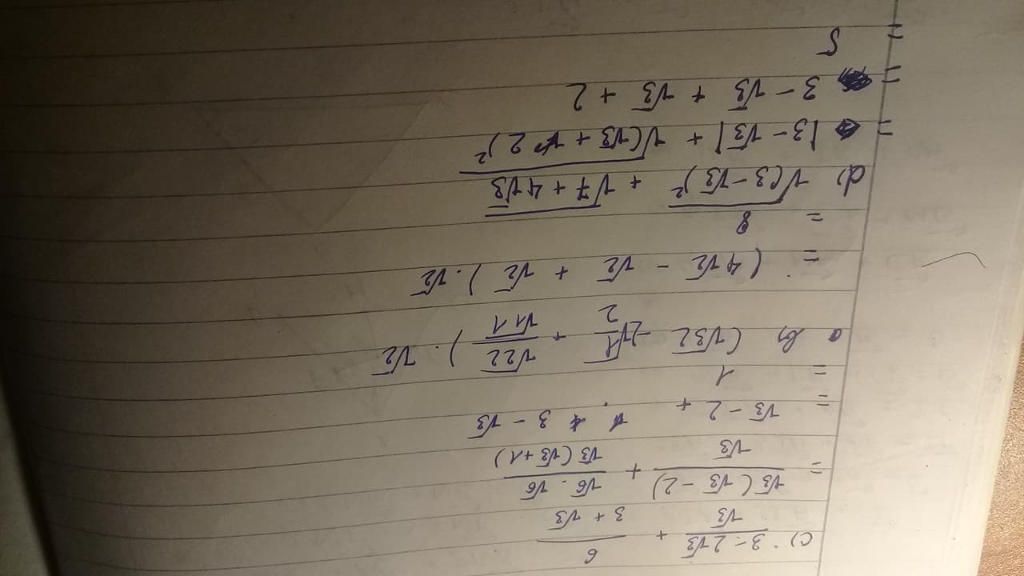 c) 3 - 2√3 / √3 + 6 / 3 + √3
= √3 (√3 - 2) / √3 + √6 . √6 / √3 (√3 + 1)
= √3 - 2 + 3 - √3
= 1
b) (√32 - 2√1/2 + √22 / √11) . √2
= (4√2 - √2 + √2) . √2
= 8
d) √(3 - √3)² + √7 + 4√3
= |3 - √3| + √(√3 + 2)²
= 3 - √3 + √3 + 2
= 5